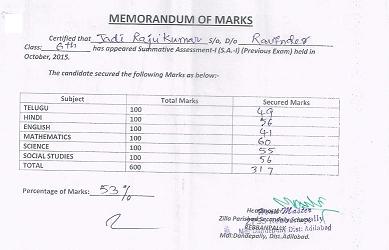 MEMORANDUM OF MARKS
Certified that Jadi Rajukumar S/o, D/o Ravinder
Class: 6th has appeared Summative Assessment-I (S.A.-I) (Previous Exam) held in
October, 2015.
The candidate secured the following Marks as below:-
Subject Total Marks Secured Marks
TELUGU 100 49
HINDI 100 56
ENGLISH 100 41
MATHEMATICS 100 60
SCIENCE 100 55
SOCIAL STUDIES 100 56
TOTAL 600 317
Percentage of Marks: 53%
Head Master
Zilla Parishad Secondary School
REBBANPALLY
Mdl:Dandepally, Dist.Adilabad.